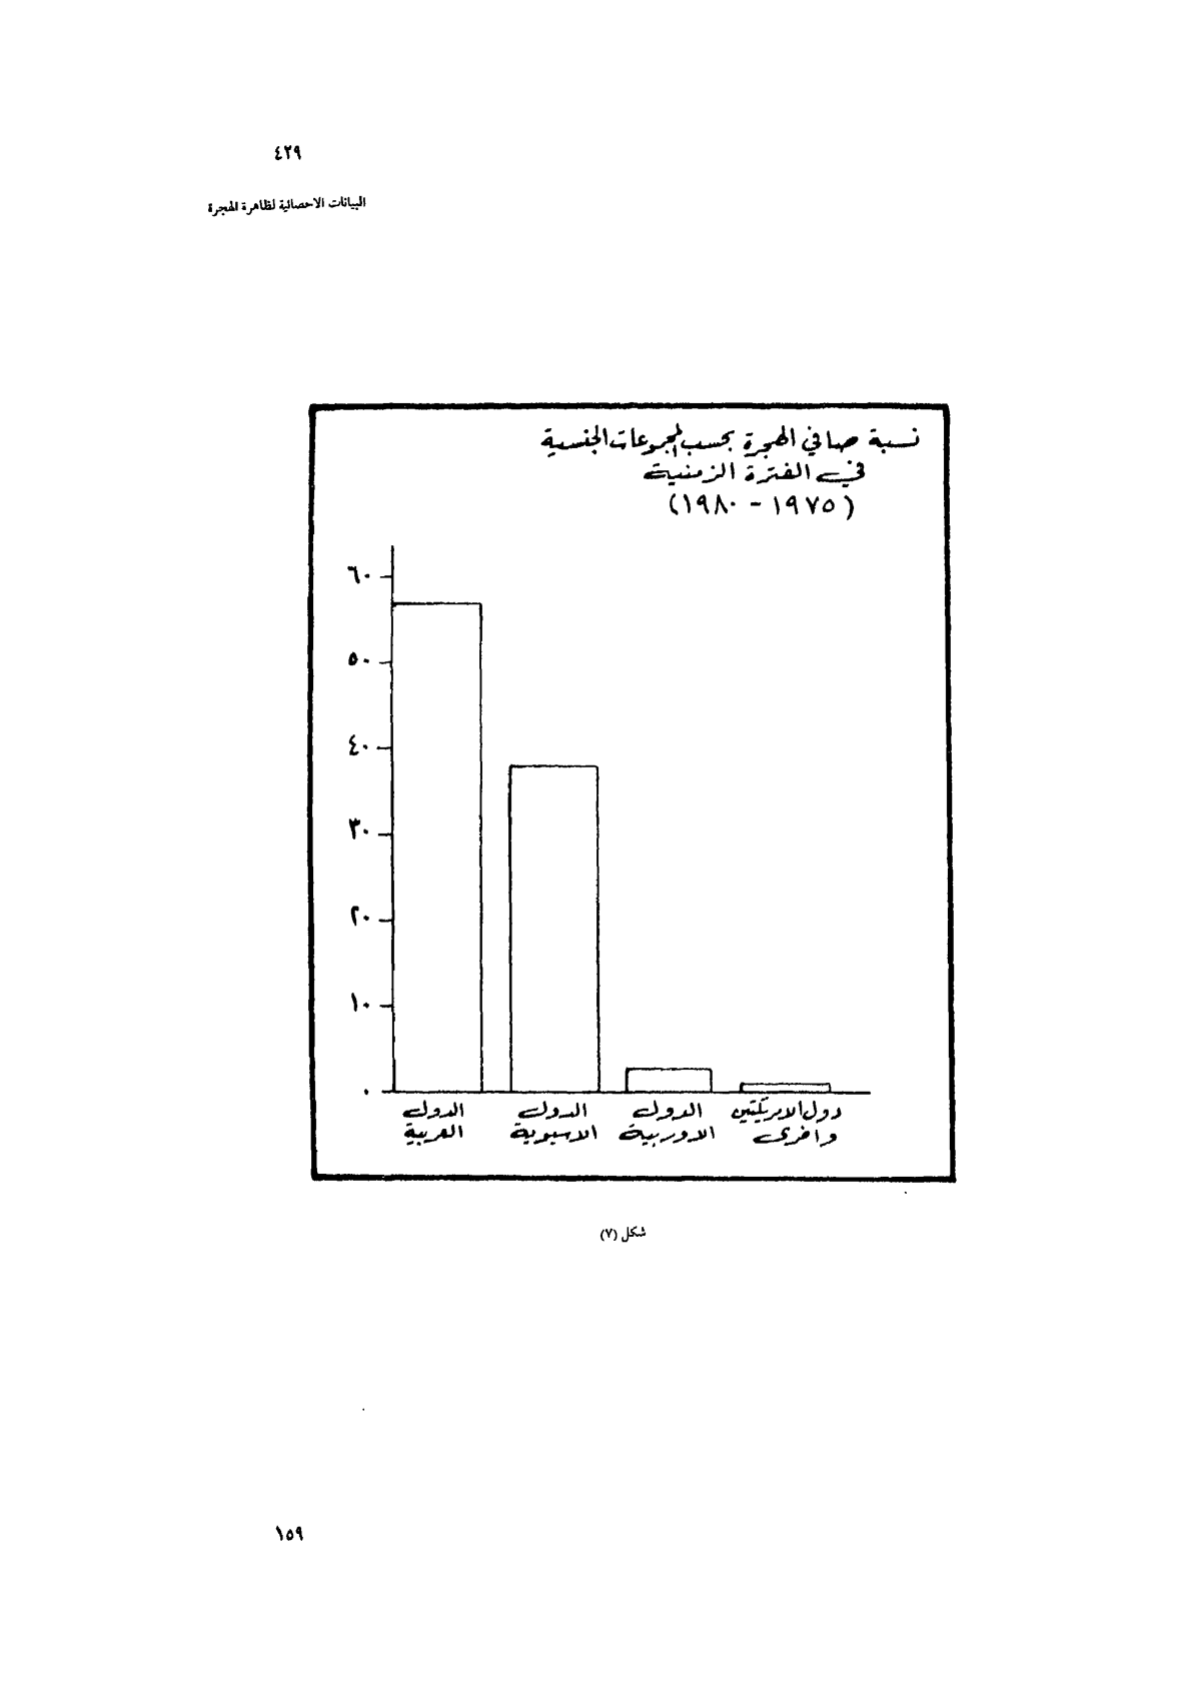 ٤٢٩
البيانات الاحصائية لظاهرة الهجرة
نسبة صافي الهجرة بحسب المجموعات الجنسية
في الفترة الزمنية
(١٩٧٥ - ١٩٨٠)
٦٠
٥٠
٤٠
٣٠
٢٠
١٠
٠
الدول العربية
الدول الاسيوية
الدول الاوربية
دول الامريكتين واخرى
شكل (٧)
١٥٩